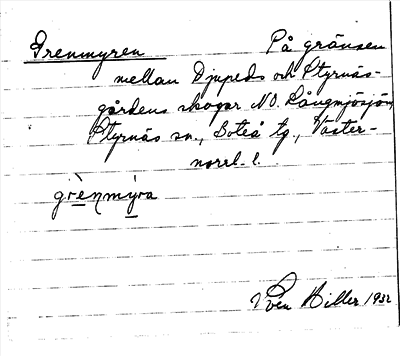 Grenmyren På gränsen
mellan Djupeds och Styrnäs-
gårdens skogar NO. Långmjösjön,
Styrnäs sn., Boteå tg., Väster-
norrl. l.
grènmỳra
Sven Hiller 1932